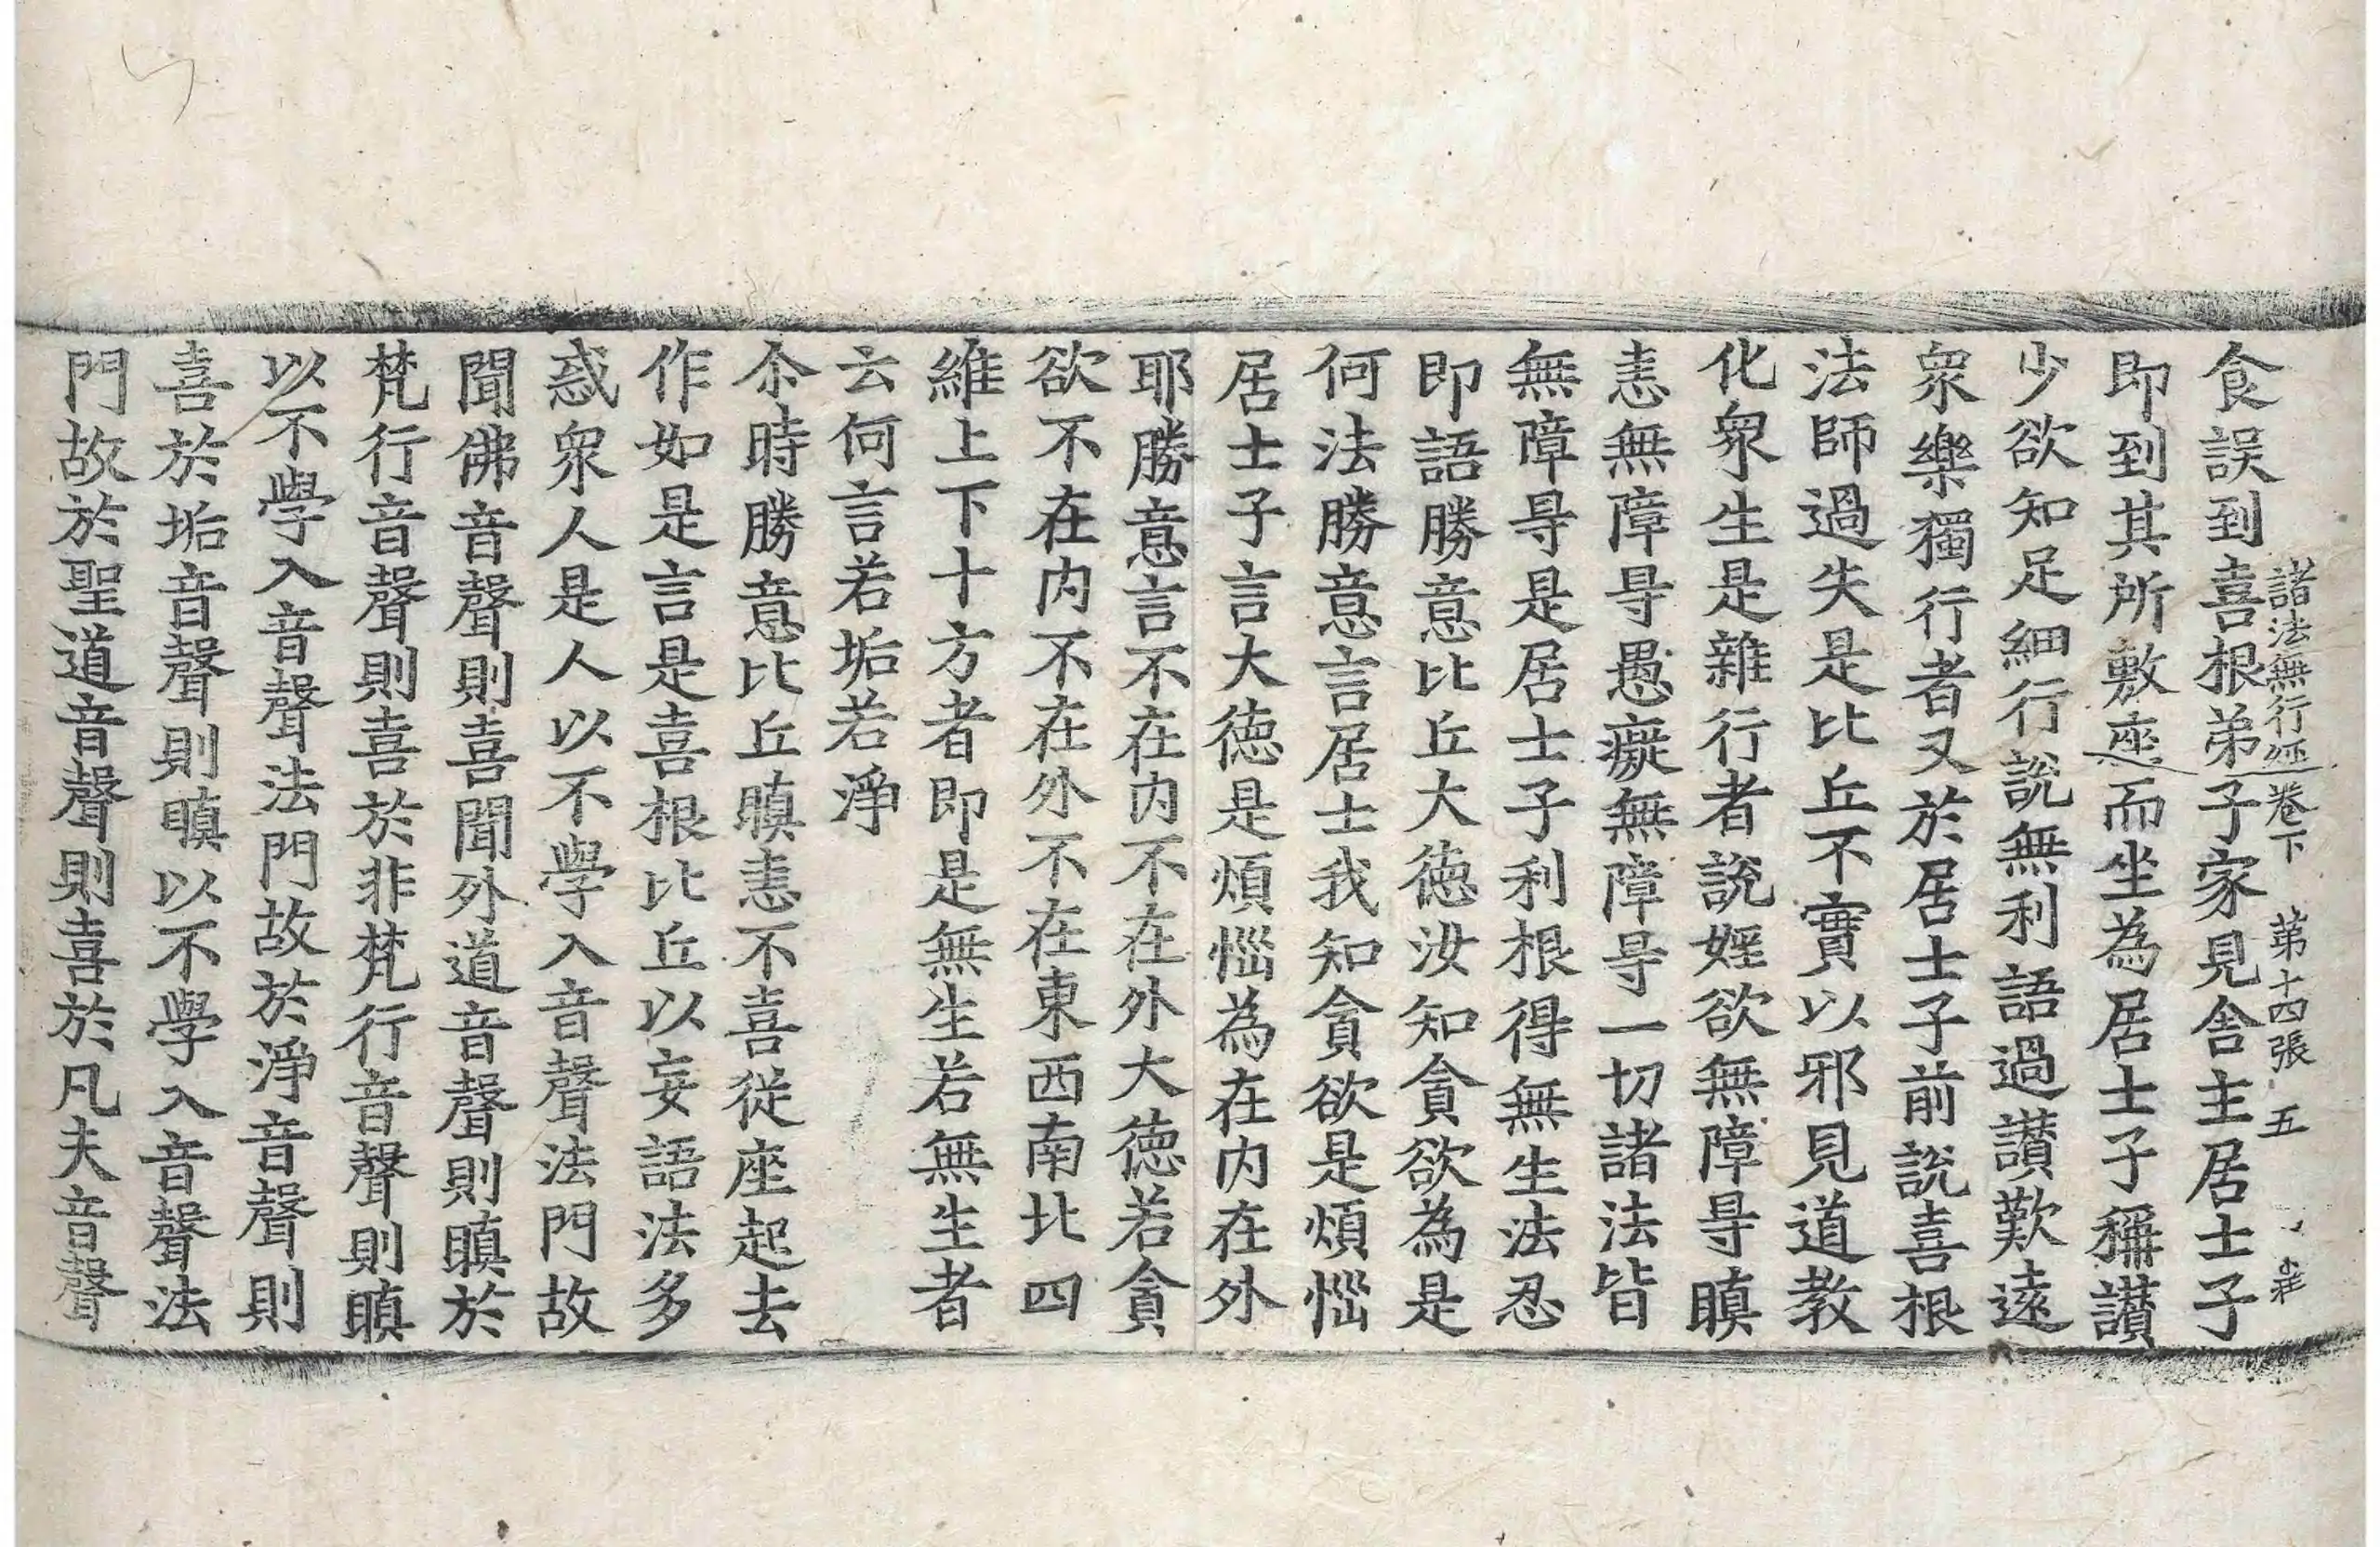 諸法無行經卷下 第十四張 五
食誤到喜根弟子家見舎主居士子
即到其所敷座而坐為居士子稱讃
少欲知足細行說無利語過讃歎遠
衆樂獨行者又於居士子前說喜根
法師過失是比丘不實以邪見道教
化衆生是雜行者說婬欲無障㝵瞋
恚無障㝵愚癡無障㝵一切諸法皆
無障㝵是居士子利根得無生法忍
即語勝意比丘大徳汝知貪欲為是
何法勝意言居士我知貪欲是煩惱
居士子言大徳是煩惱為在内在外
耶勝意言不在内不在外大徳若貪
欲不在内不在外不在東西南北四
維上下十方者即是無生若無生者
云何言若垢若淨
尒時勝意比丘瞋恚不喜從座起去
作如是言是喜根比丘以妄語法多
惑衆人是人以不學入音聲法門故
聞佛音聲則喜聞外道音聲則瞋於
梵行音聲則喜於非梵行音聲則瞋
以不學入音聲法門故於淨音聲則
喜於垢音聲則瞋以不學入音聲法
門故於聖道音聲則喜於凡夫音聲